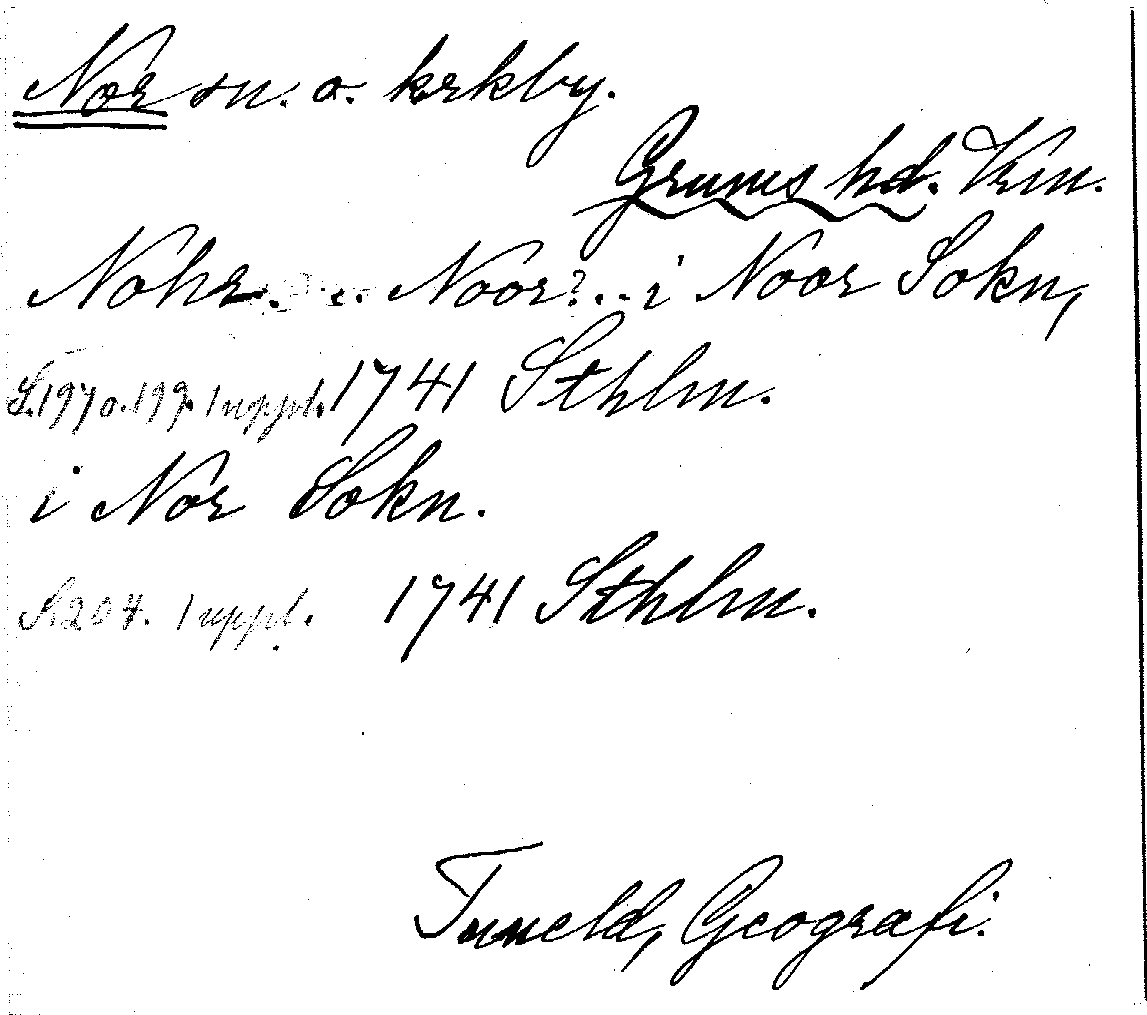 Nor sn. o. krkby.
Grums hd. Vrm.
Nohr. . . Noor? . . i Noor Sokn,
S. 197 o. 199. 1 uppl. 1741 Sthlm.
i Nor Sokn.
S. 204. 1 uppl. 1741 Sthlm.
Tuneld, Geografi.